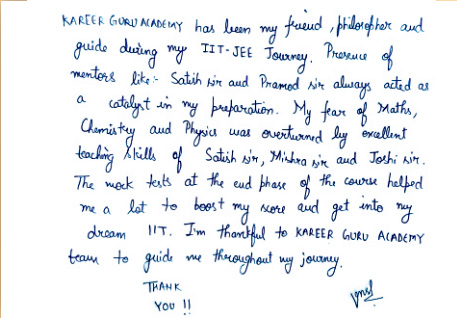 KAREER GURU ACADEMY has been my friend, philosopher and
guide during my IIT-JEE Journey. Presence of
mentors like:- Satish sir and Pramod sir always acted as
a catalyst in my preparation. My fear of Maths,
Chemistry and Physics was overturned by excellent
teaching skills of Satish sir, Mishra sir and Joshi sir.
The mock tests at the end phase of the course helped
me a lot to boost my score and get into my
dream IIT. I'm thankful to KAREER GURU ACADEMY
team to guide me throughout my journey.
THANK
YOU !!